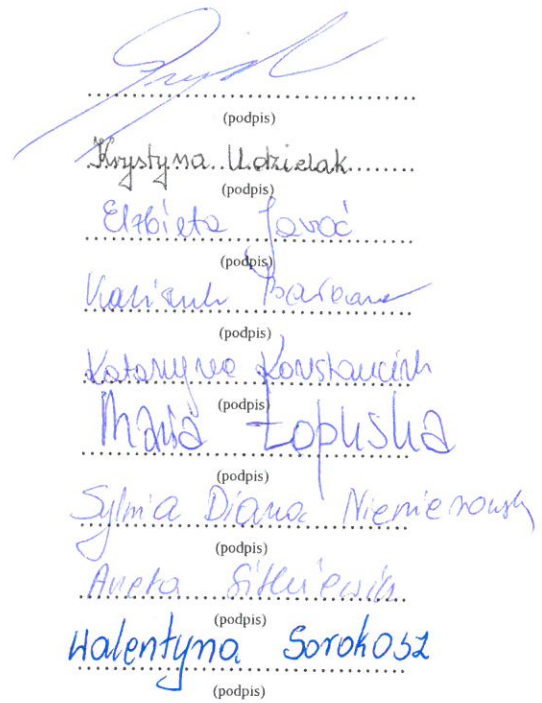 (podpis)
Krystyna Udzielak
(podpis)
Elżbieta Jaroć
(podpis)
Barbara
(podpis)
Katarzyna Konstanciuk
(podpis)
Maria Łopuska
(podpis)
Sylwia Diana Niemierowska
(podpis)
Aneta Sitkiewicz
(podpis)
Walentyna Sorokosz
(podpis)